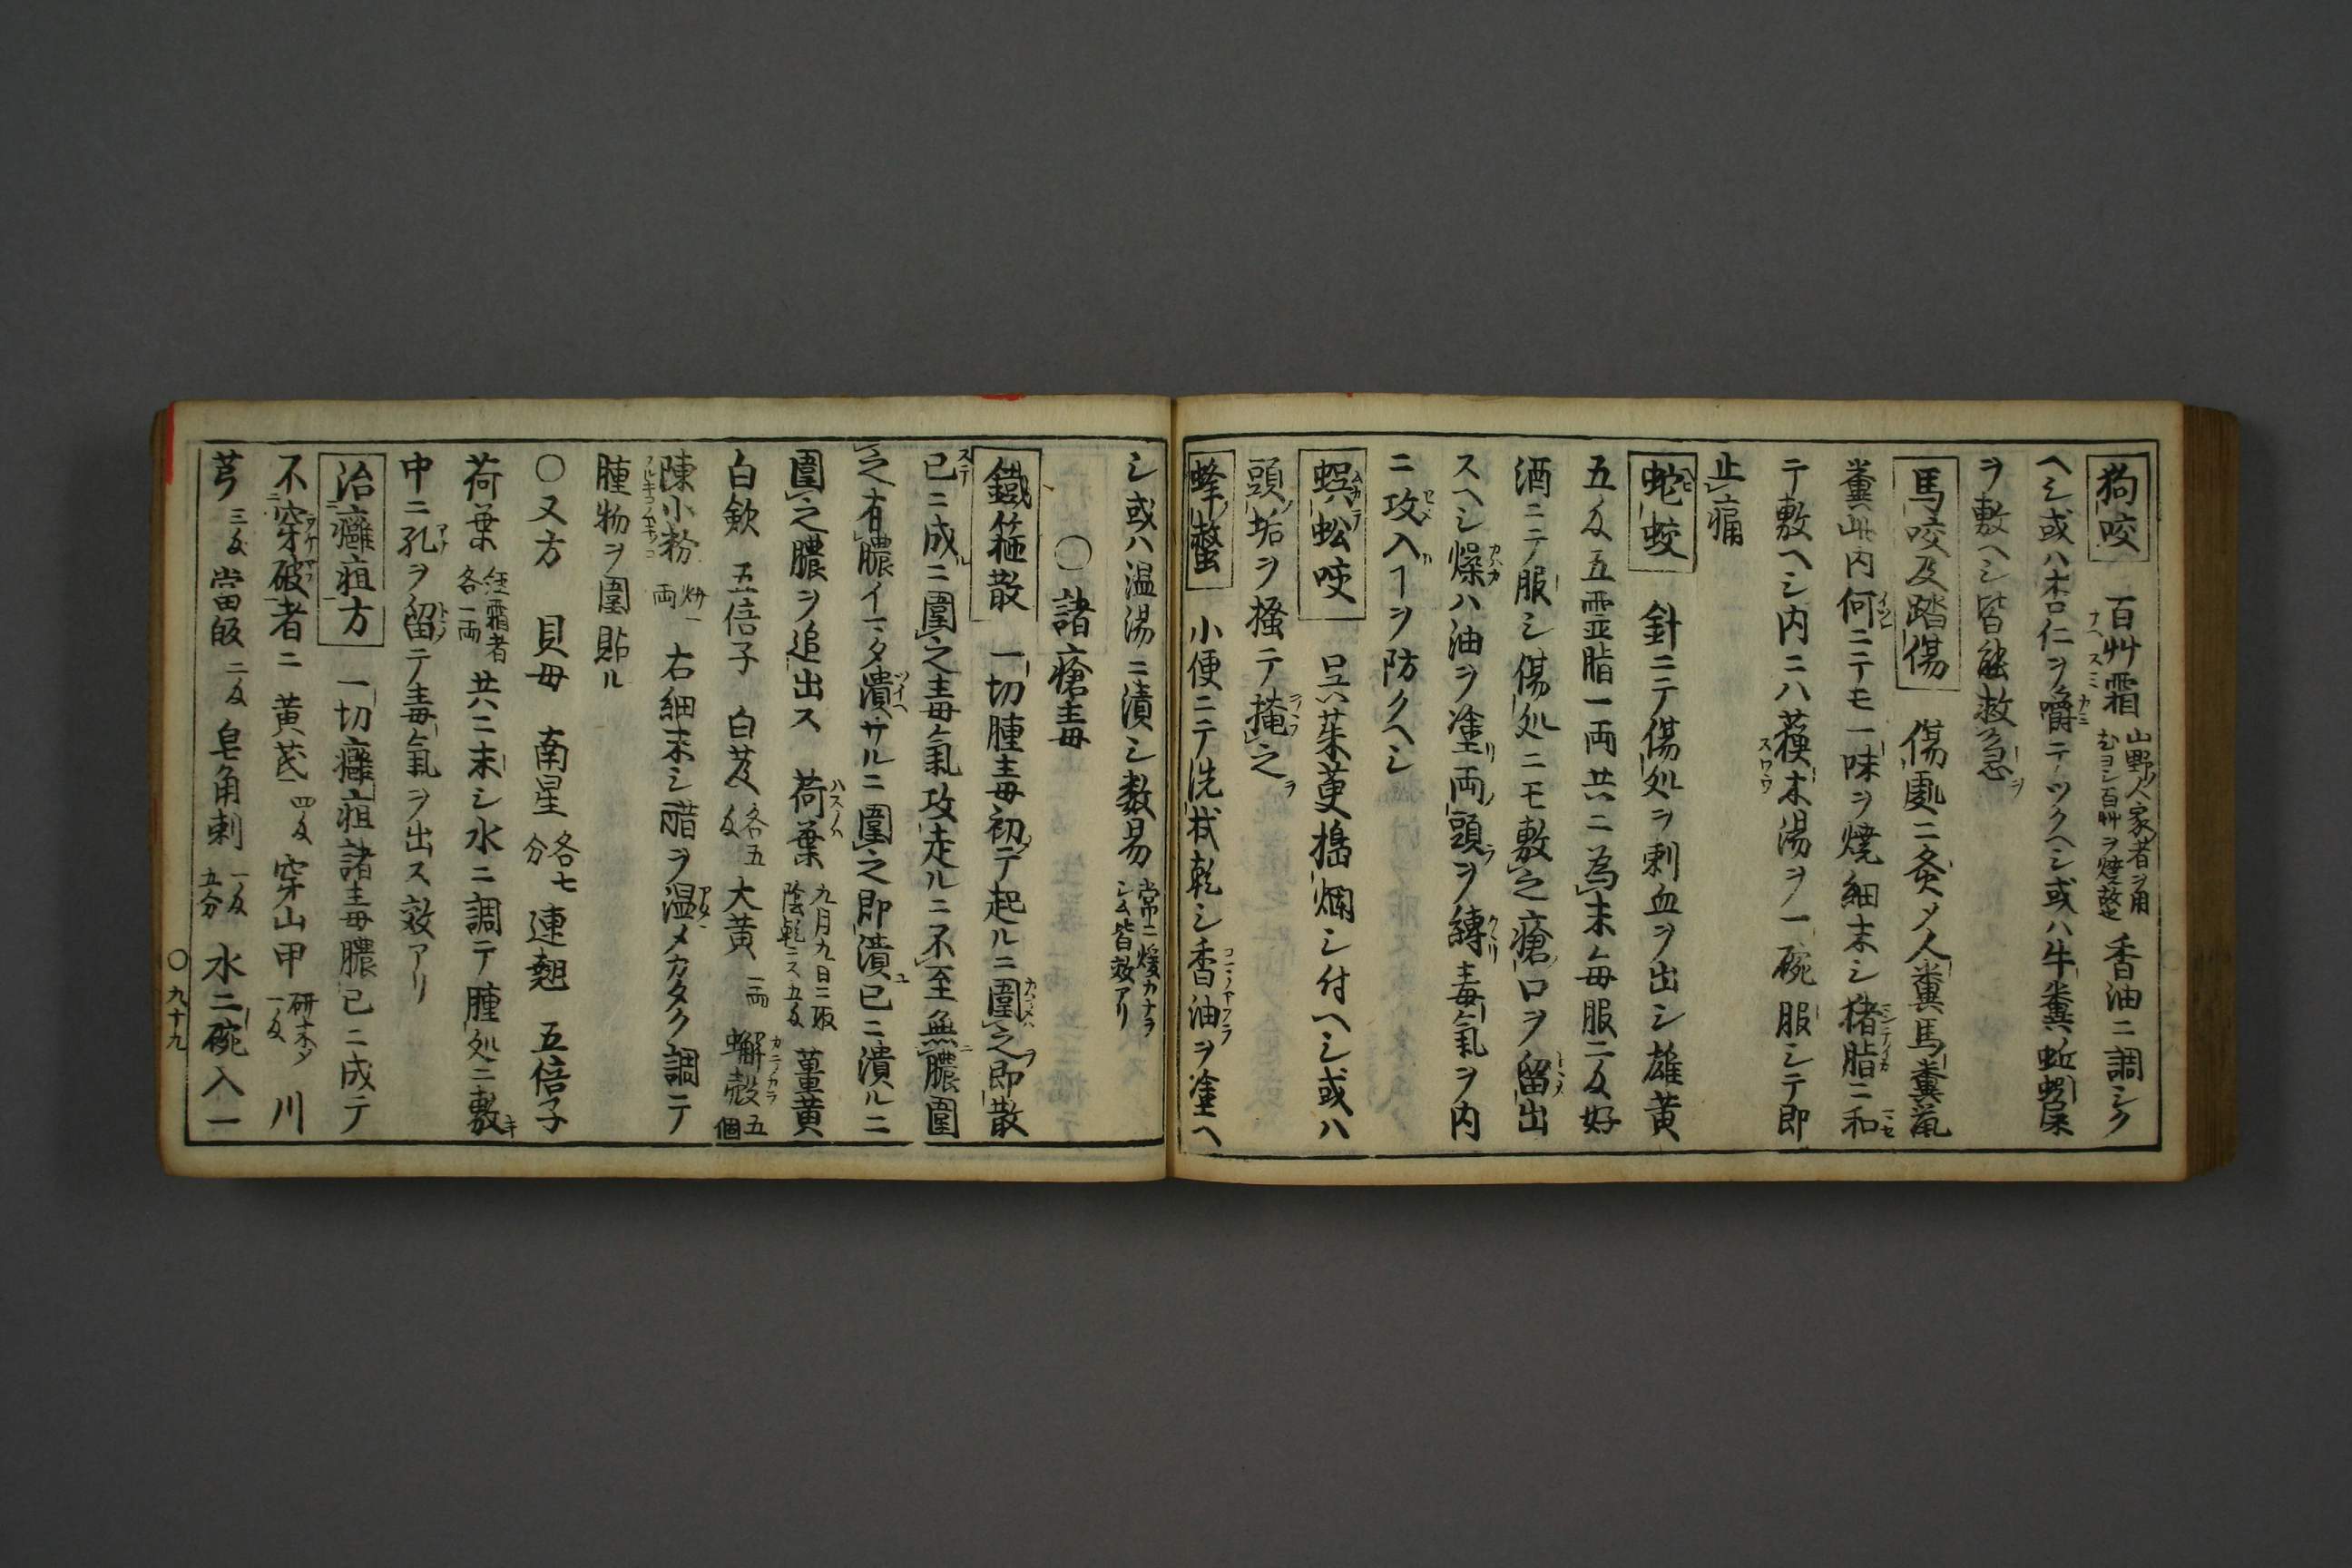 狗咬 百艸霜 山野人家者ヲ用 百艸ヲ焼 香油ニ調シク
ヘシ或ハ杏仁ヲ嚼テツクヘシ或ハ牛糞蚯蚓屎
ヲ敷ヘシ皆能救急
馬咬及踏傷 傷處ニ灸メ人糞馬糞鼠
糞此内何ニテモ一味ヲ焼細末シ猪脂ニ和
テ敷ヘシ内ニハ蘓木湯ヲ一碗服シテ即
止痛
蛇蛟 針ニテ傷処ヲ刺血ヲ出シ雄黄
五匁五霊脂一両共ニ為末毎服二匁好
酒ニテ服シ傷処ニモ敷之瘡口ヲ留出
スヘシ燥ハ油ヲ塗両頭ヲ縛毒氣ヲ内
ニ攻入ヿヲ防クヘシ
蜈蚣咬 呉茱萸搗爛シ付ヘシ或ハ
頭垢ヲ掻テ掩之
蜂螫 小便ニテ洗拭乾シ香油ヲ塗ヘ
シ或ハ温湯ニ漬シ数易 常ニ煖カナラシム皆效アリ
〇諸瘡毒
鐵箍散 一切腫毒初テ起ルニ圍之即散
已ニ成ルニ圍之毒氣攻走ルニ不至無膿圍
之有膿イマタ潰サルニ圍之即潰已ニ潰ルニ
圍之膿ヲ追出ス 荷葉 九月九日ニ取陰乾ニス五匁 菫黄
白歛 五倍子 白芨 各五匁 大黄 一両 蠏殻 五個
陳小粉 炒一両 右細末シ醋ヲ温メカタク調テ
腫物ヲ圍貼ル
〇又方 貝母 南星 各七分 連翹 五倍子
荷葉 經霜者各一両 共ニ末シ水ニ調テ腫処ニ敷
中ニ孔ヲ留テ毒氣ヲ出ス效アリ
治癰疽方 一切癰疽諸毒膿已ニ成テ
不穿破者ニ 黄芪 四匁 穿山甲 研末メ一匁 川
芎 三匁 當皈 二匁 皂角刺 一匁五分 水二碗入一
〇九十九